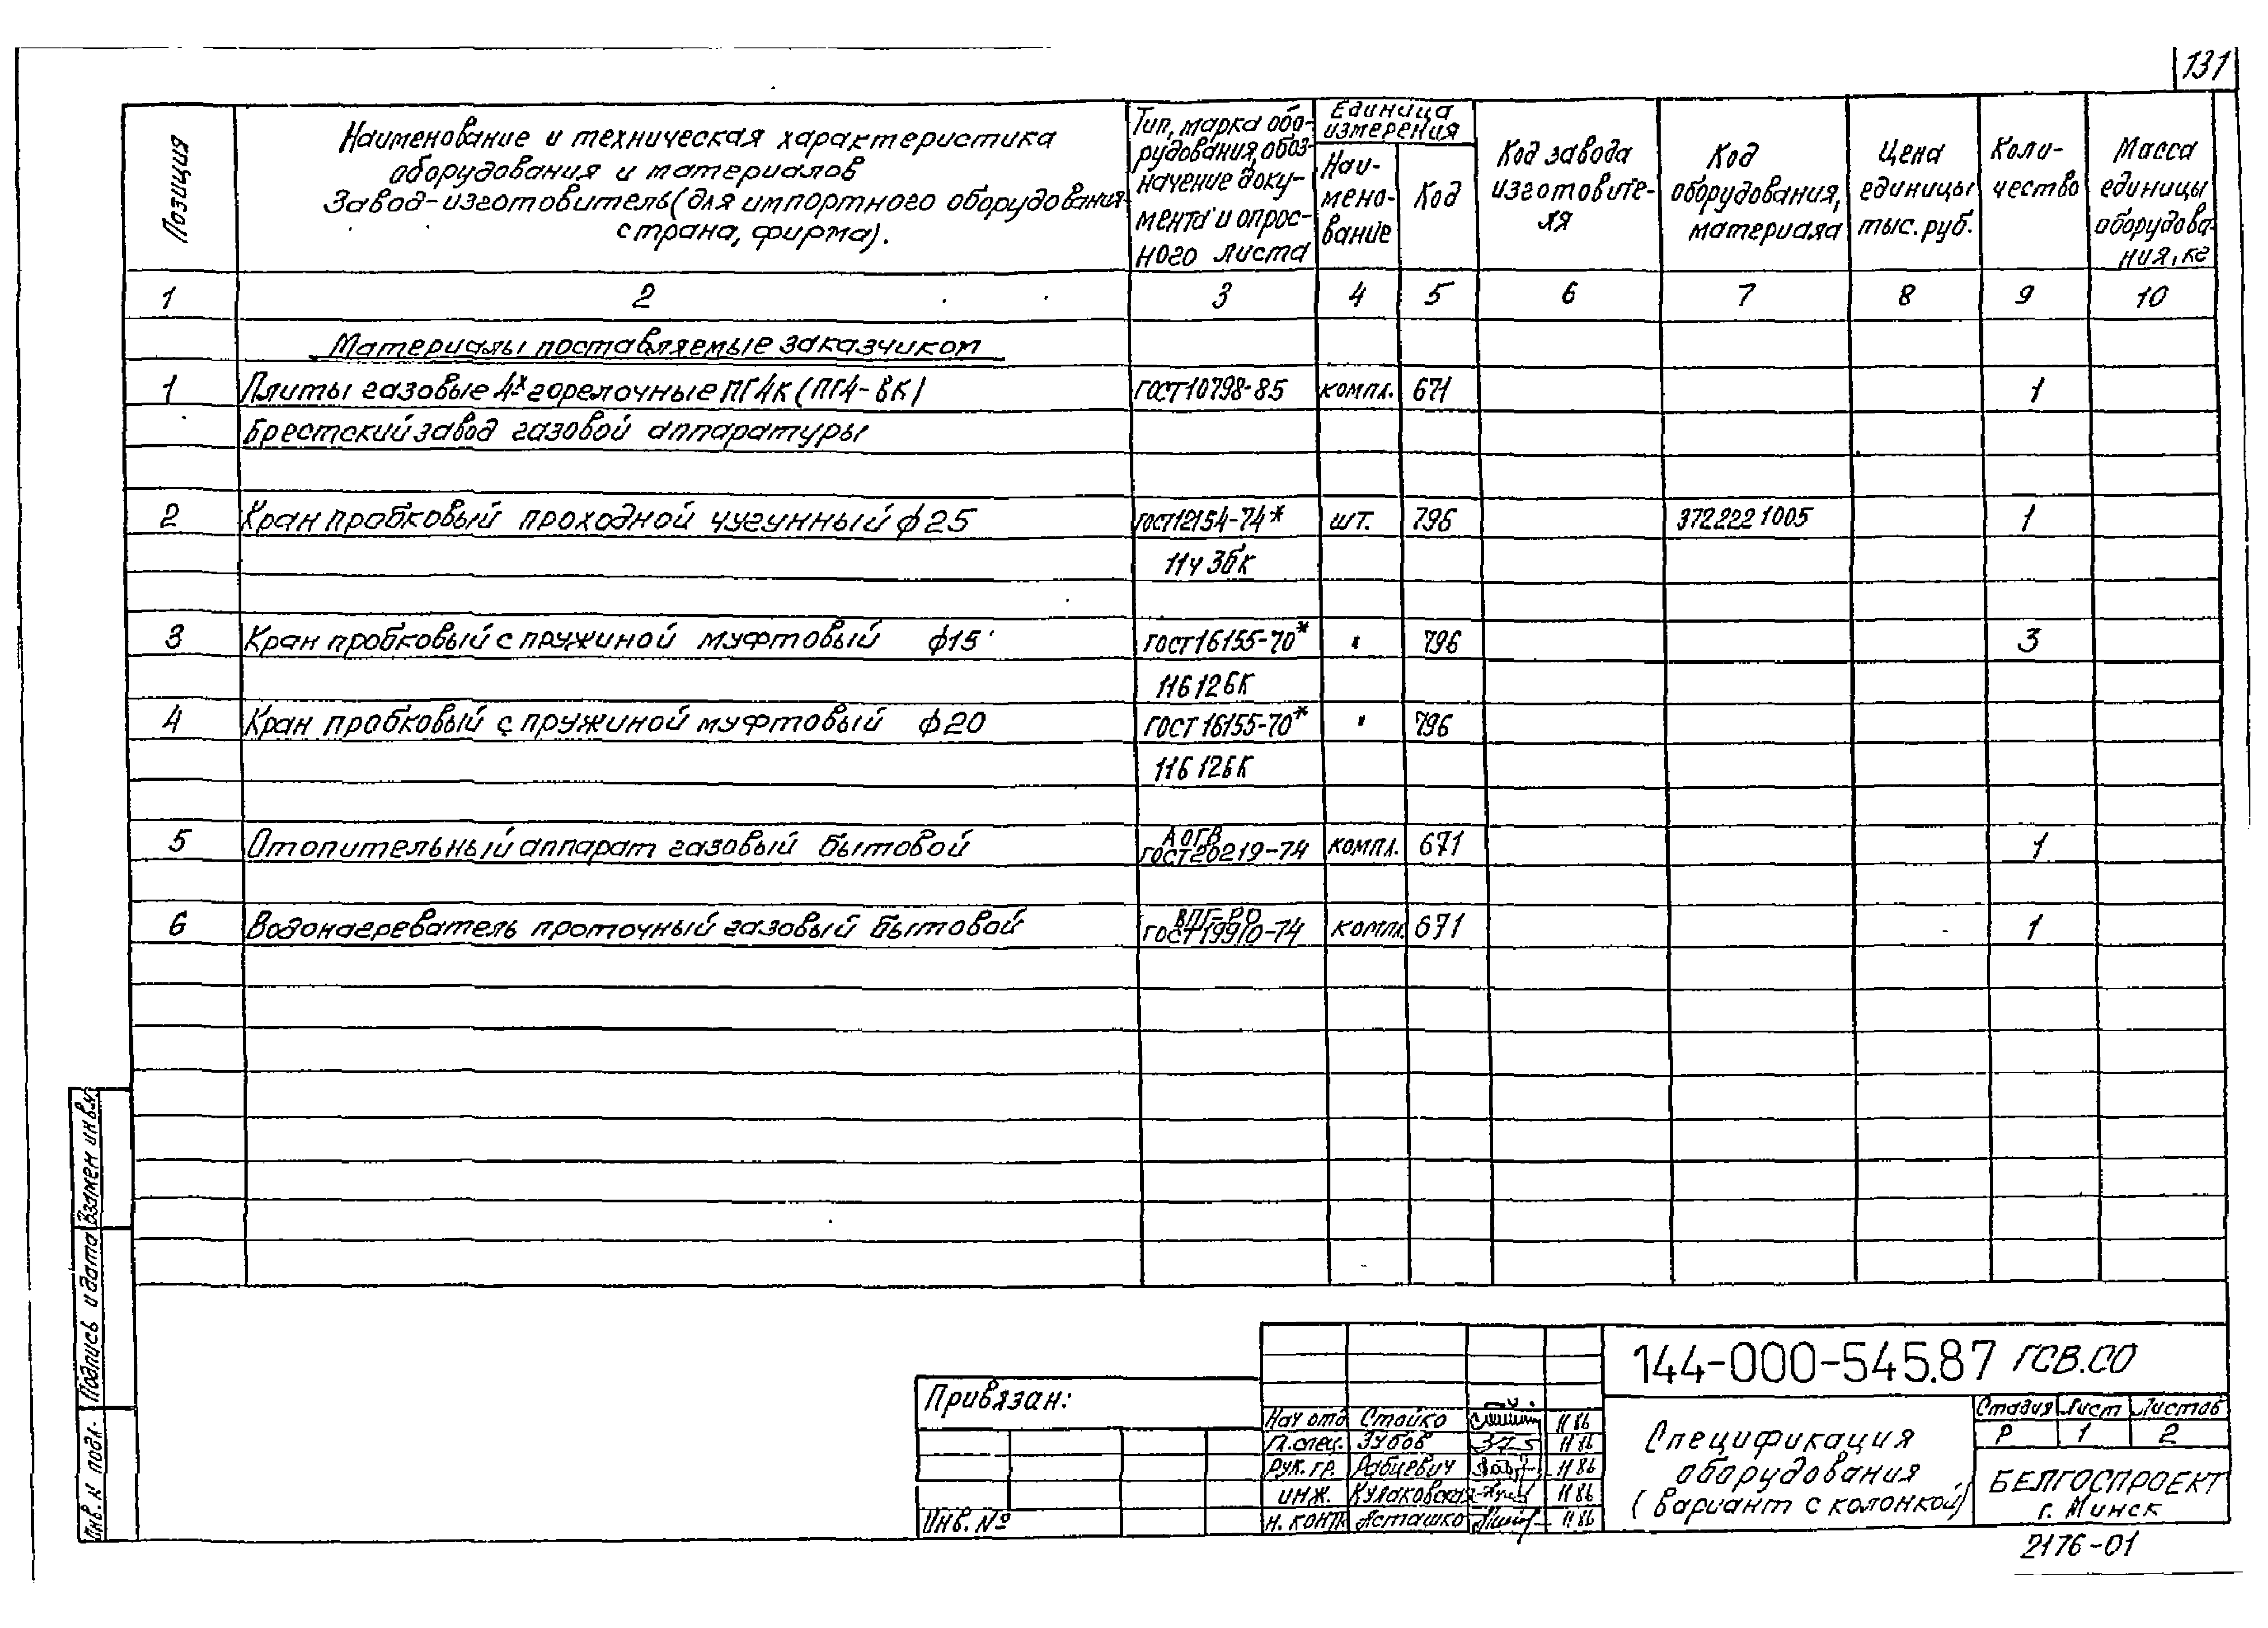 131
Позиция
Наименование и техническая характеристика
оборудования и материалов
Завод-изготовитель (для импортного оборудования-
страна, фирма).
Тип, марка обо-
рудования, обоз
начение доку-
мента и опрос-
ного листа
Единица
измерения
Наи-
мено-
вание
Код
Код завода
изготовите-
ля
Код
оборудования,
материала
Цена
единицы
тыс. руб.
Коли-
чество
Масса
единицы
оборудова-
ния, кг
1 2 3 4 5 6 7 8 9 10
Материалы поставляемые заказчиком
1 Плиты газовые 4х горелочные ПГ4К (ПГ4-ВК) ГОСТ10798-85 компл. 671 1
Брестский завод газовой аппаратуры
2 Кран пробковый проходной чугунный ф25 ГОСТ12154-74* шт. 796 372222 1005 1
11ч 3бк
3 Кран пробковый с пружиной муфтовый ф15 ГОСТ16155-70* " 796 3
11б 12бк
4 Кран пробковый с пружиной муфтовый ф20 ГОСТ 16155-70* " 796
11б 12бк
5 Отопительный аппарат газовый бытовой АОГВ ГОСТ20219-74 компл. 671 1
6 Водонагреватель проточный газовый бытовой ГОСТ19910-74 компл. 671 1
Взамен инв.н
Подпись и дата
Инв. н подл.
Привязан:
Инв. №
144-000-545.87 ГСВ.СО
Нач отд Стойко 11 86
Гл. спец. Зубов 11 86
Рук. гр. Рабцевич 11 86
инж. Кулаковская 11 86
н. контр Асташко 11 86
Спецификация
оборудования
(вариант с колонкой)
Стадия Лист Листов
Р 1 2
БЕЛГОСПРОЕКТ
г. Минск
2176-01